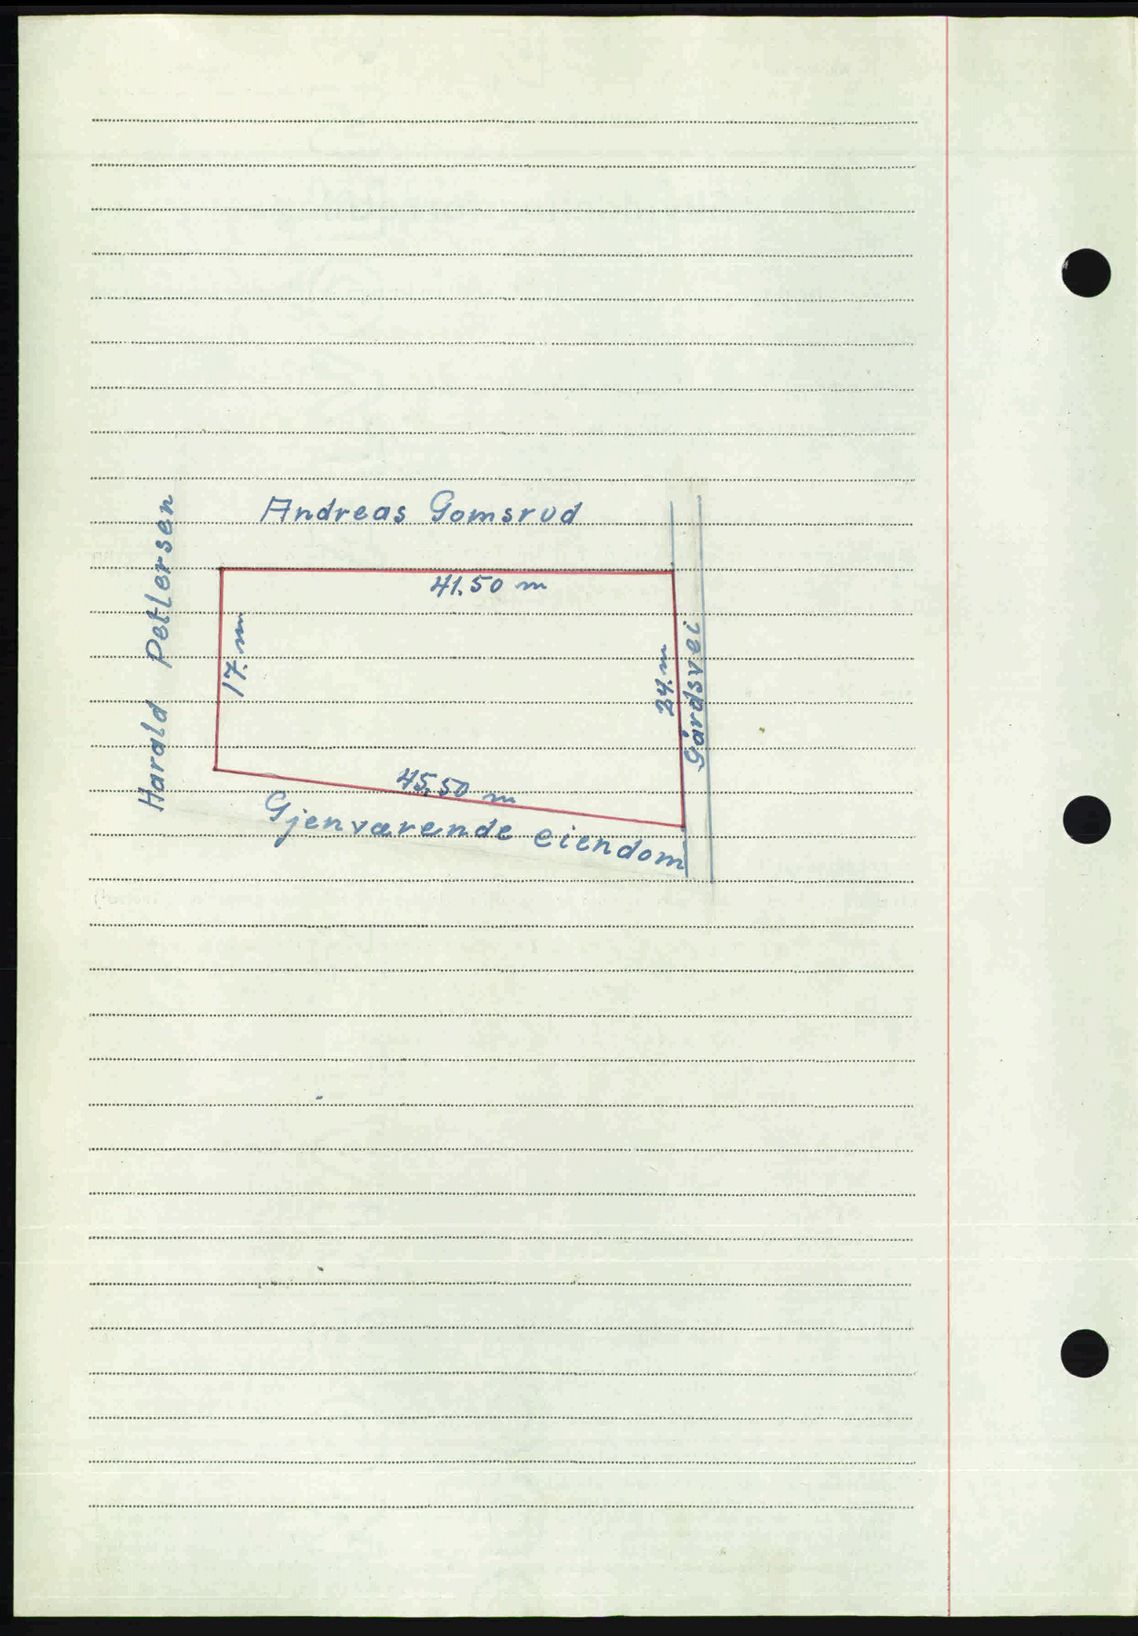 Andreas Gomsrud
Harald Petlersen
41.50 m
17. m
24. m
Gårdsvei
45.50 m
Gjenværende eiendom